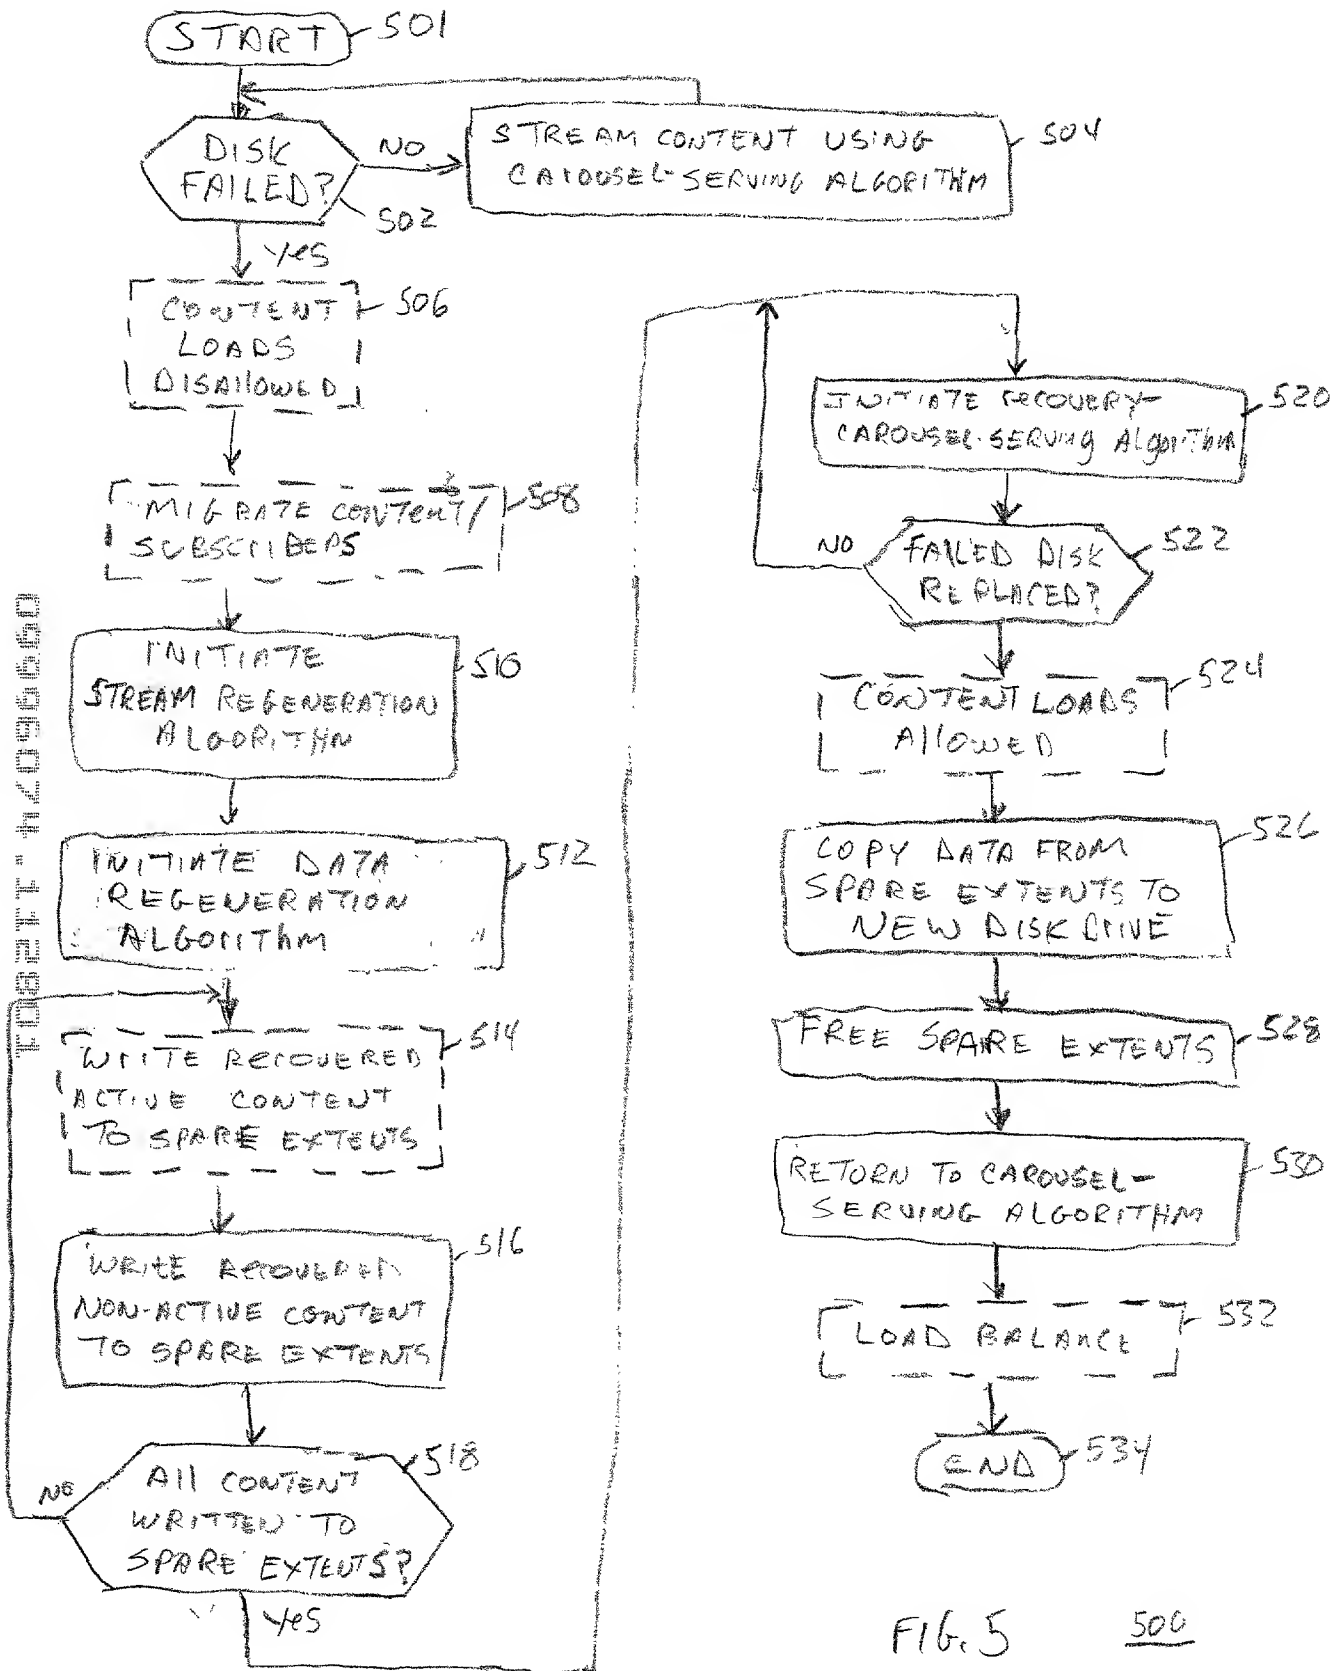 START
501
DISK
FAILED?
502
NO
STREAM CONTENT USING
CAROUSEL-SERVING ALGORITHM
504
Yes
CONTENT
LOADS
DISAllOWED
506
MIGRATE CONTENT/
SUBSCRIBERS
508
INITIATE
STREAM REGENERATION
ALGORITHM
510
INITIATE DATA
REGENERATION
ALGORITHM
512
WRITE RECOVERED
ACTIVE CONTENT
TO SPARE EXTENTS
514
WRITE RECOVERED
NON-ACTIVE CONTENT
TO SPARE EXTENTS
516
All CONTENT
WRITTEN TO
SPARE EXTENTS?
518
NO
Yes
INITIATE RECOVERY-
CAROUSEL-SERVING Algorithm
520
FAILED DISK
REPLACED?
522
NO
CONTENT LOADS
AllOWED
524
COPY DATA FROM
SPARE EXTENTS TO
NEW DISK DRIVE
526
FREE SPARE EXTENTS
528
RETURN TO CAROUSEL-
SERVING ALGORITHM
530
LOAD BALANCE
532
END
534
FIG. 5
500